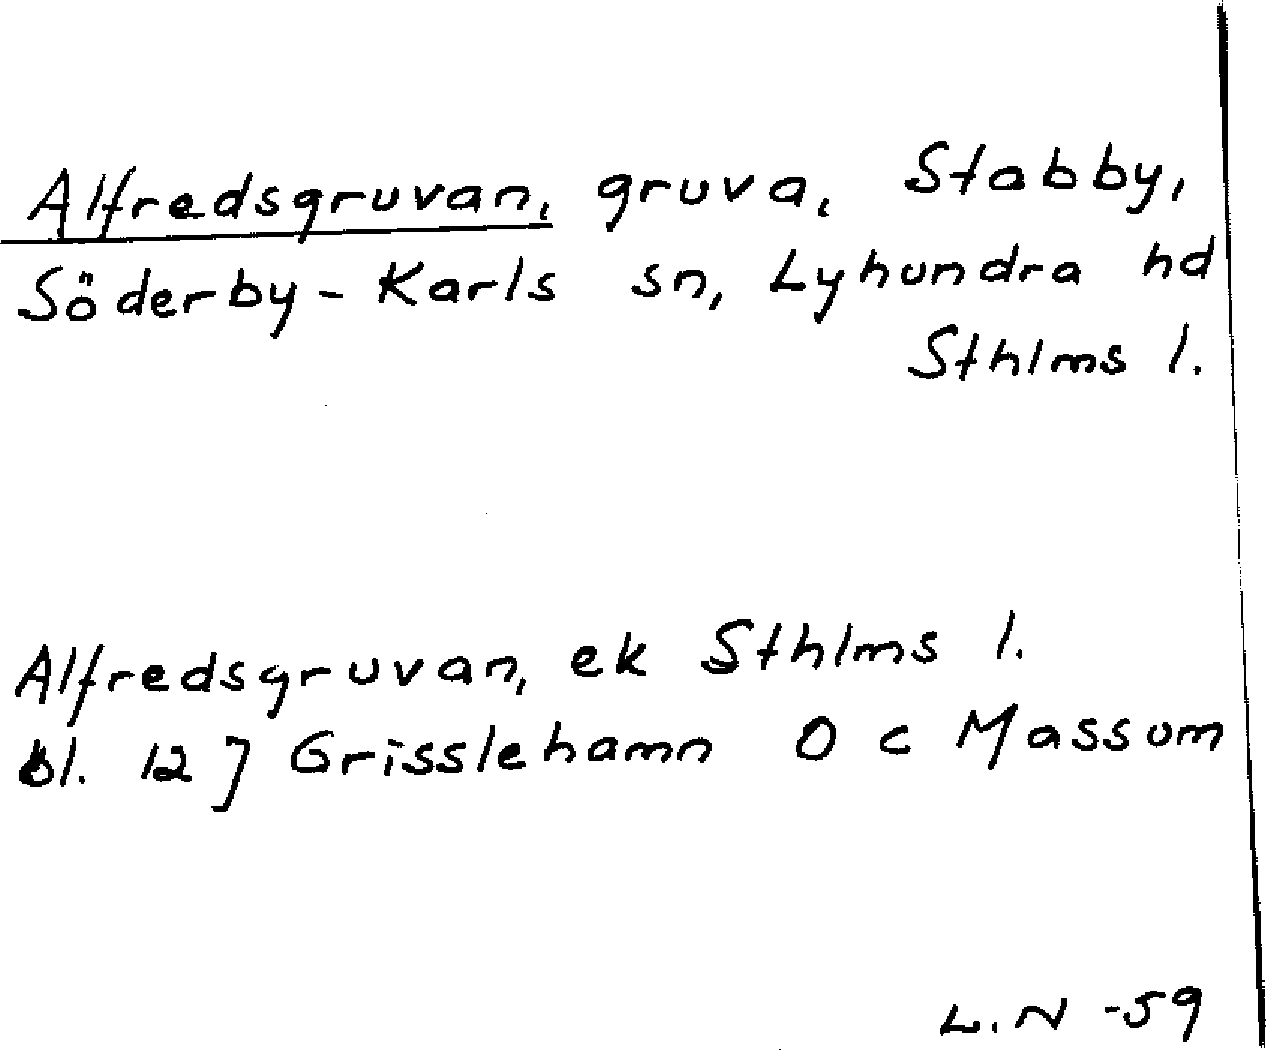 Alfredsgruvan, gruva, Stabby,
Söderby-Karls sn, Lyhundra hd
Sthlms l.
Alfredsgruvan, ek Sthlms l.
bl. 12 J Grisslehamn O c Massum
L.N -59